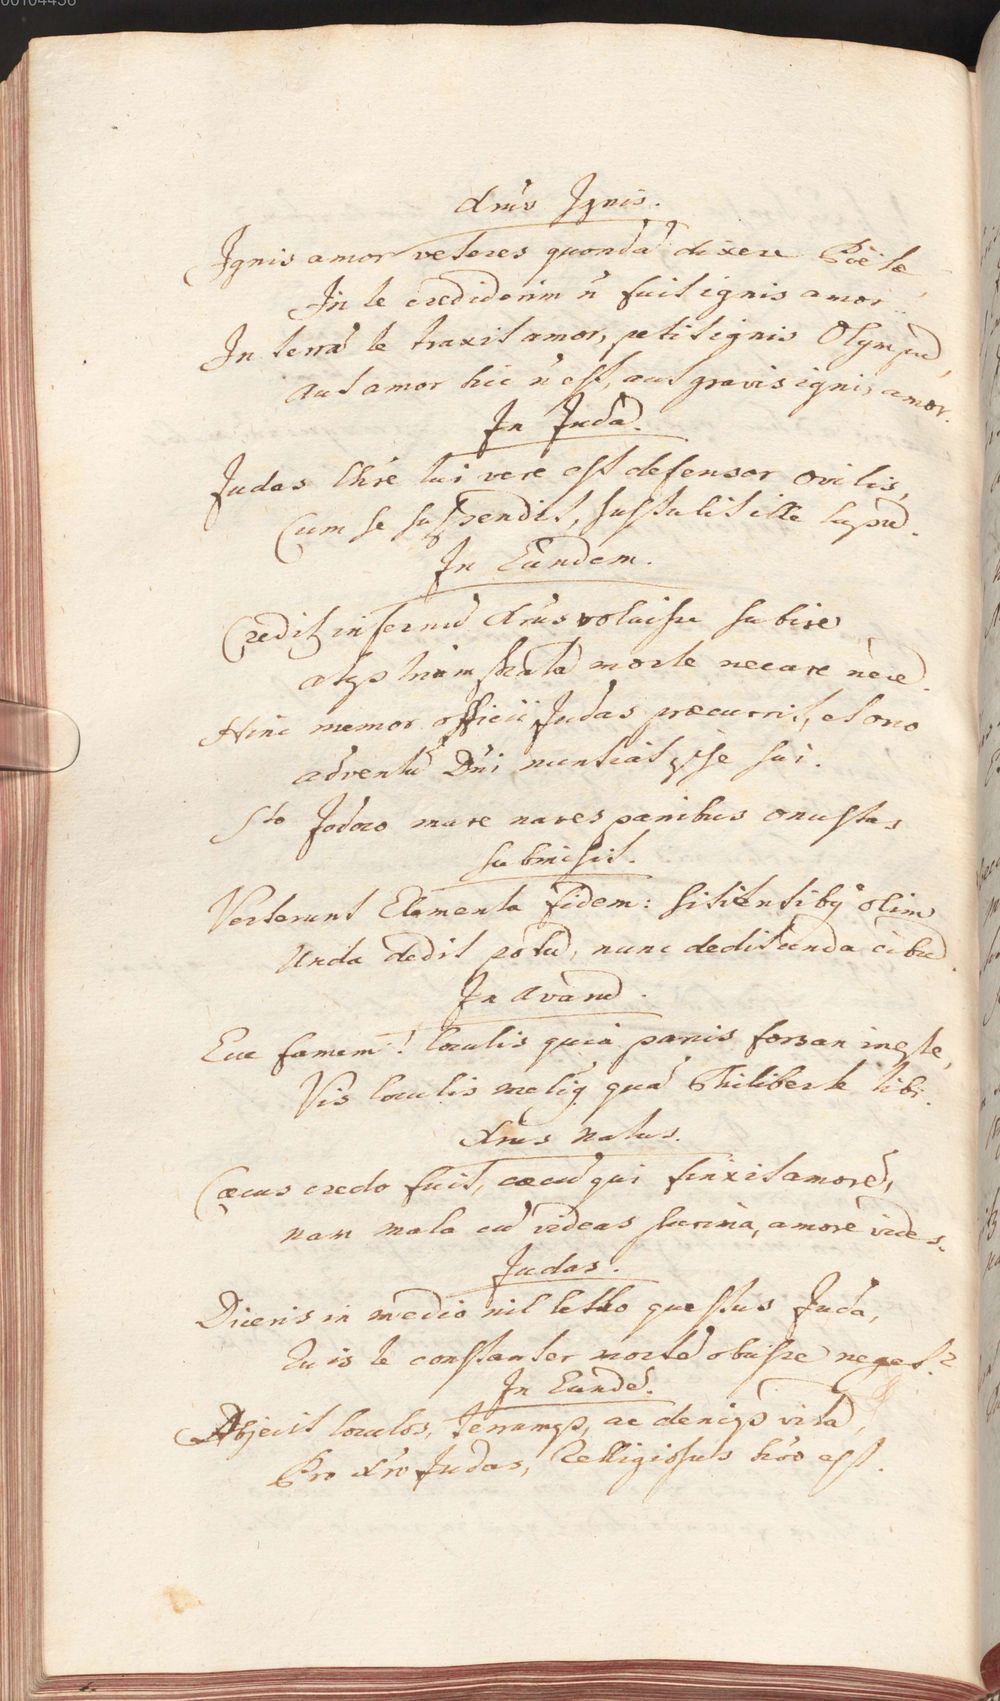 00104436
Xrũs Ignis.
Ignis amor veteres quondã dixere Poëtæ,
In te crediderim ñ fuit ignis amor.
In terrã te traxit amor, petit ignis Olympũ,
aut amor hic ñ est, aut gravis ignis amor.
In Judã.
Judas Chrẽ tui vere est defensor ovilis,
Cum se suspendit, sustulit ille lupũ.
In Eundem.
Credit infernũ Xrũs voluisse subire
atqꝫ mortẽ morte necare
Hinc memor officii Judas præcurrit, et orco
adventũ Dñi nuntiat ipse sui.
Sto Jodoco mare naves panibus onustas
submisit.
Verterunt Elementa fidem: sitientibꝯ olim
Unda dedit potũ, nunc dedit unda cibũ.
In avarũ.
Eue famem! loculis quia panis forsan inest,
Vis loculis meliꝯ quã Philiberte tibi.
Xrũs natus.
Cæcus credo fuit, cæcũ qui finxit amorẽ,
nam mala cũ videas, amorẽ vides.
Judas.
Diceris in medio nil letho questus Juda,
Quis te constanter mortẽ obiisse neget?
In Eundẽ.
Abjecit loculos, terramqꝫ, ac deniqꝫ vitã,
Pro Xrõ Judas, Relligiosus hõo est.